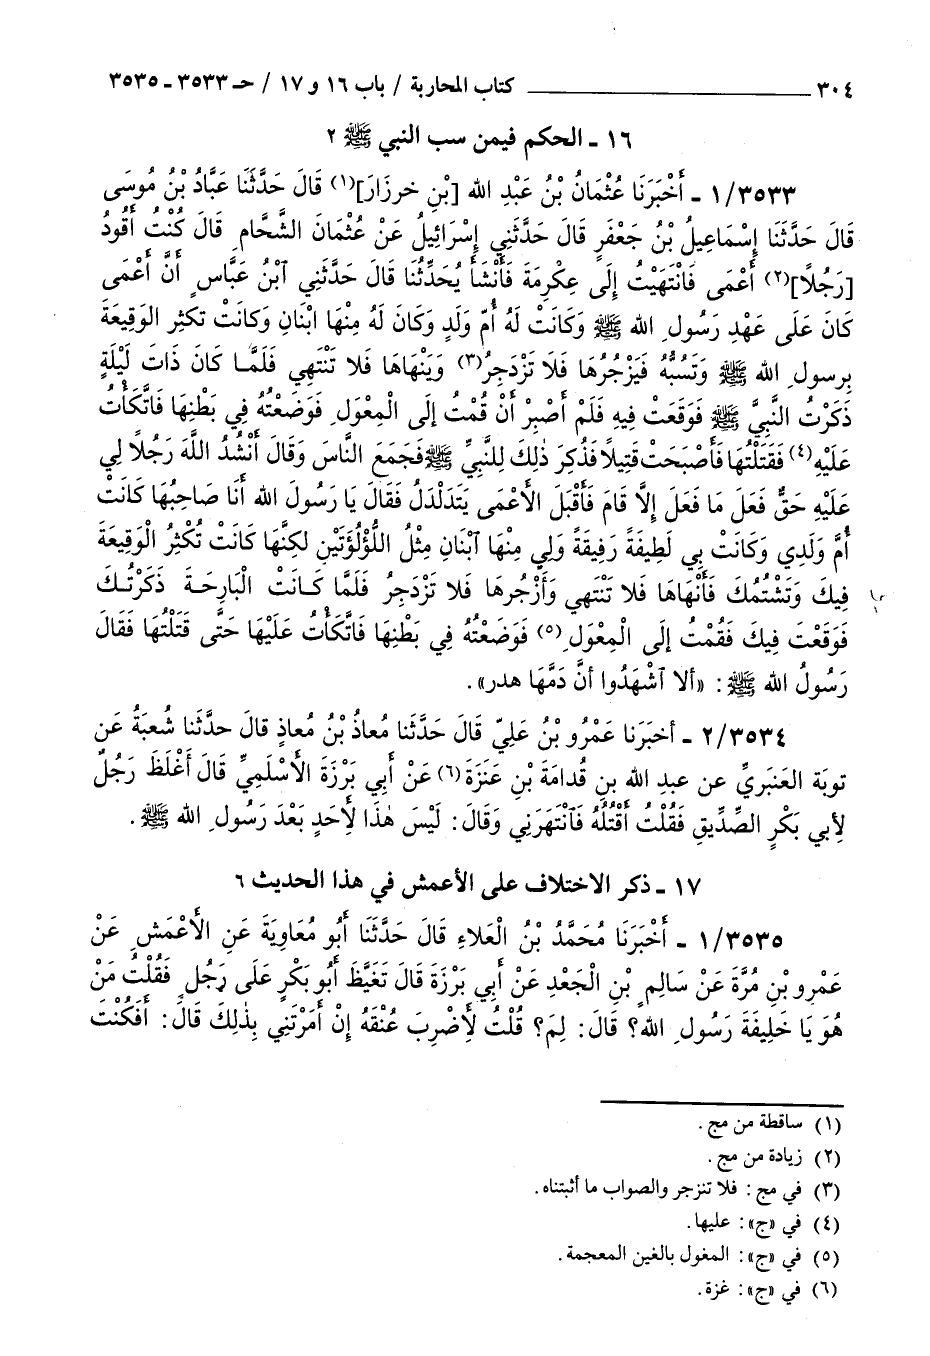 ٣٠٤ ــــــــــ كتاب المحاربة / باب ١٦ و ١٧ / حـ ٣٥٣٣ ـ ٣٥٣٥
١٦ ـ الحكم فيمن سب النبي ﷺ ٢
١/٣٥٣٣ ـ أَخْبَرَنَا عُثْمَانُ بْنُ عَبْدِ الله [بْنِ خرزَارَ](١) قَالَ حَدَّثَنَا عَبَّادُ بْنُ مُوسَى
قَالَ حَدَّثَنَا إِسْمَاعِيلُ بْنُ جَعْفَرٍ قَالَ حَدَّثَنِي إِسْرَائِيلُ عَنْ عُثْمَانَ الشَّحَّامِ قَالَ كُنْتُ أَقُودُ
[رَجُلًا](٢) أَعْمَى فَانْتَهَيْتُ إِلَى عِكْرِمَةَ فَأَنْشَأَ يُحَدِّثُنَا قَالَ حَدَّثَنِي ٱبْنُ عَبَّاسٍ أَنَّ أَعْمَى
كَانَ عَلَى عَهْدِ رَسُولِ الله ﷺ وَكَانَتْ لَهُ أُمّ وَلَدٍ وَكَانَ لَهُ مِنْهَا ابْنَانِ وَكَانَتْ تكثِر الوَقِيعَةَ
بِرسولِ الله ﷺ وَتَسُبُّهُ فَيَزْجُرُهَا فَلَا تَزْدَجِرُ(٣) وَيَنْهَاهَا فَلَا تَنْتَهِي فَلَمَّا كَانَ ذَاتَ لَيْلَةٍ
ذَكَرْتُ النَّبِيَّ ﷺ فَوَقَعَتْ فِيهِ فَلَمْ أَصْبِرْ أَنْ قُمْتُ إِلَى الْمِعْوَلِ فَوَضَعْتُهُ فِي بَطْنِهَا فَاتَّكَأْتُ
عَلَيْهِ(٤) فَقَتَلْتُهَا فَأَصْبَحَتْ قَتِيلًا فَذُكِرَ ذٰلِكَ لِلنَّبِيِّ ﷺ فَجَمَعَ النَّاسَ وَقَالَ أَنْشُدُ اللَّهَ رَجُلًا لِي
عَلَيْهِ حَقٌّ فَعَلَ مَا فَعَلَ إِلَّا قَامَ فَأَقْبَلَ الأَعْمَى يَتَدَلْدَلُ فَقَالَ يَا رَسُولَ الله أَنَا صَاحِبُهَا كَانَتْ
أُمَّ وَلَدِي وَكَانَتْ بِي لَطِيفَةً رَفِيقَةً وَلِي مِنْهَا ٱبْنَانِ مِثْلُ اللُّؤْلُؤَتَيْنِ لكِنَّهَا كَانَتْ تُكْثِرُ الْوَقِيعَةَ
فِيكَ وَتَشْتُمُكَ فَأَنْهَاهَا فَلَا تَنْتَهِي وَأَزْجُرهَا فَلَا تَزْدَجِرُ فَلَمَّا كَانَتْ الْبَارِحَةَ ذَكَرْتُكَ
فَوَقَعَتْ فِيكَ فَقُمْتُ إِلَى الْمِعْوَلِ(٥) فَوَضَعْتُهُ فِي بَطْنِهَا فَاتَّكَأْتُ عَلَيْهَا حَتَّى قَتَلْتُهَا فَقَالَ
رَسُولُ الله ﷺ : «ألا ٱشْهَدُوا أنَّ دَمَّهَا هدر».
٢/٣٥٣٤ ـ أخبَرَنَا عَمْرُو بْنُ عَلِيّ قَالَ حَدَّثَنَا مُعاذُ بْنُ مُعاذٍ قالَ حدَّثَنا شُعبَةُ عَن
توبَة العَنبَريِّ عن عبدِ الله بنِ قُدامَةَ بْنِ عَنَزَةَ(٦) عَنْ أَبِي بَرْزَةَ الأَسْلَمِيِّ قَالَ أَغْلَظَ رَجُلٌ
لِأبي بَكْرٍ الصِّدِّيقِ فَقُلْتُ أَقْتُلُهُ فَٱنْتَهَرَنِي وَقَالَ: لَيْسَ هٰذَا لِأَحَدٍ بَعْدَ رَسُولِ الله ﷺ .
١٧ ـ ذكر الاختلاف على الأعمش في هذا الحديث ٦
١/٣٥٣٥ ـ أَخْبَرَنَا مُحَمَّدُ بْنُ الْعَلَاءِ قَالَ حَدَّثَنَا أَبُو مُعَاوِيَةَ عَنِ الأَعْمَشِ عَنْ
عَمْرِو بْنِ مُرَّةَ عَنْ سَالِمِ بْنِ الْجَعْدِ عَنْ أَبِي بَرْزَةَ قَالَ تَغَيَّظَ أَبُو بَكْرٍ عَلَى رَجُلٍ فَقُلْتُ مَنْ
هُوَ يَا خَلِيفَةَ رَسُولِ الله؟ قَالَ: لِمَ؟ قُلْتُ لِأَضْرِبَ عُنُقَهُ إِنْ أَمَرْتَنِي بِذٰلِكَ قَالَ: أَفَكُنْتَ
(١) ساقطة من مج .
(٢) زيادة من مج .
(٣) في مج : فلا تنزجر والصواب ما أثبتناه .
(٤) في «ج»: عليها .
(٥) في «ج»: المغول بالغين المعجمة .
(٦) في «ج»: غزة .